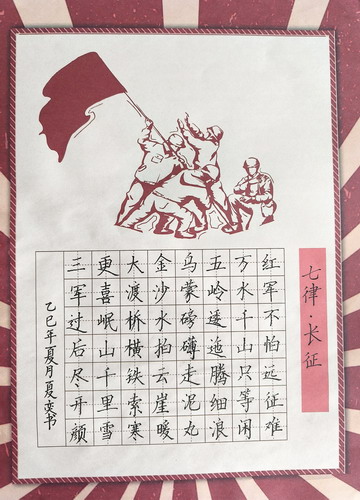 七律·长征
红军不怕远征难
万水千山只等闲
五岭逶迤腾细浪
乌蒙磅礴走泥丸
金沙水拍云崖暖
大渡桥横铁索寒
更喜岷山千里雪
三军过后尽开颜
乙巳年夏月夏奕书